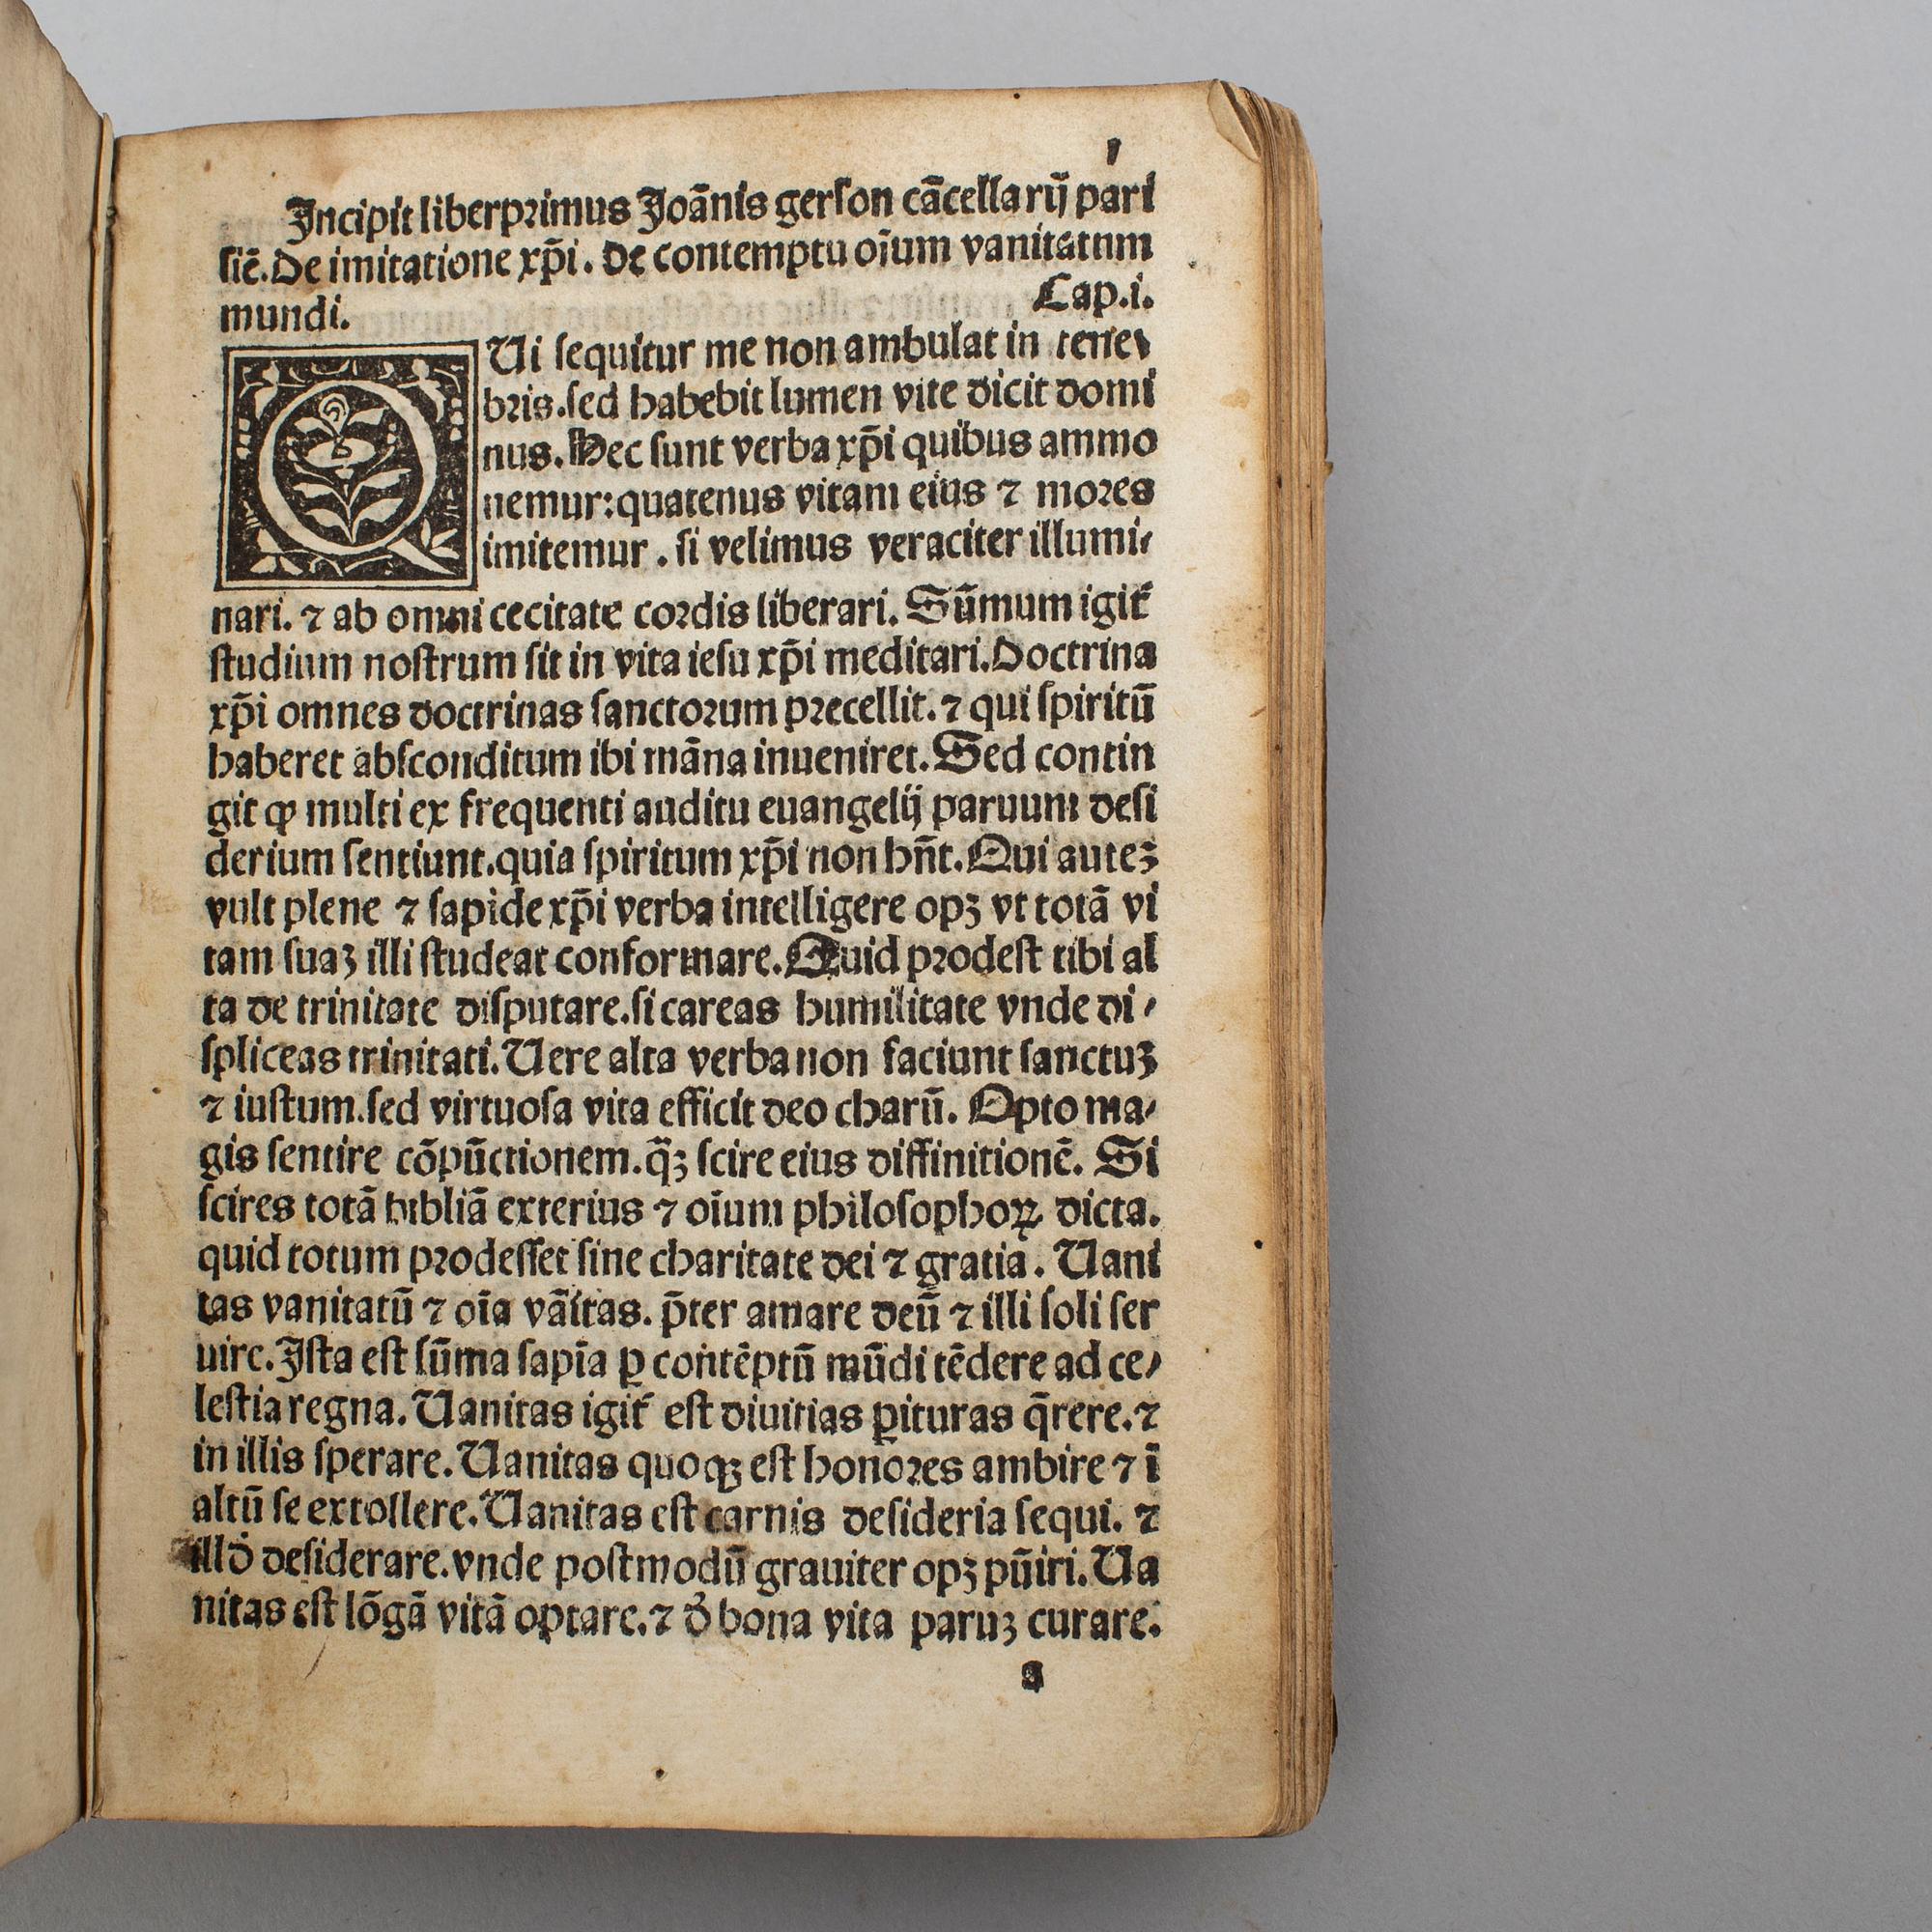 1
Incipit liber primus Joãnis gerſon cãcellarij pari
ſiẽ. De imitatione xp̄i. De contemptu oĩum vanitatum
mundi. Cap.i.
QUi ſequitur me non ambulat in tene⸗
bris. ſed habebit lumen vite dicit domi
nus. Hec ſunt verba xp̄i quibus ammo
nemur: quatenus vitam eius ⁊ mores
imitemur. ſi velimus veraciter illumi⸗
nari. ⁊ ab omni cecitate cordis liberari. Sũmum igit᷑
ſtudium noſtrum ſit in vita ieſu xp̄i meditari. Doctrina
xp̄i omnes doctrinas ſanctorum precellit. ⁊ qui ſpiritũ
haberet abſconditum ibi mãna inueniret. Sed contin
git ꝙ multi ex frequenti auditu euangelij paruum deſi
derium ſentiunt. quia ſpiritum xp̄i non hn̄t. Qui auteꝫ
vult plene ⁊ ſapide xp̄i verba intelligere opꝫ vt totã vi
tam ſuaꝫ illi ſtudeat conformare. Quid prodeſt tibi al
ta de trinitate diſputare. ſi careas humilitate vnde di⸗
ſpliceas trinitati. Uere alta verba non faciunt ſanctuꝫ
⁊ iuſtum. ſed virtuoſa vita efficit deo charũ. Opto ma⸗
gis ſentire cõpũctionem. q̃ꝫ ſcire eius diffinitionẽ. Si
ſcires totã bibliã exterius ⁊ oĩum philoſophoꝝ dicta.
quid totum prodeſſet ſine charitate dei ⁊ gratia. Uani
tas vanitatũ ⁊ oĩa vãitas. p̄ter amare deũ ⁊ illi ſoli ſer
uire. Iſta eſt ſũma ſapĩa ꝑ contẽptũ mũdi tẽdere ad ce⸗
leſtia regna. Uanitas igit᷑ eſt diuitias ꝑituras q̃rere. ⁊
in illis ſperare. Uanitas quoqꝫ eſt honores ambire ⁊ ĩ
altũ ſe extollere. Uanitas eſt carnis deſideria ſequi. ⁊
illd̓ deſiderare. vnde poſtmodũ grauiter opꝫ pũiri. Ua
nitas eſt lõgã vitã optare. ⁊ d̓ bona vita paruꝫ curare.
a